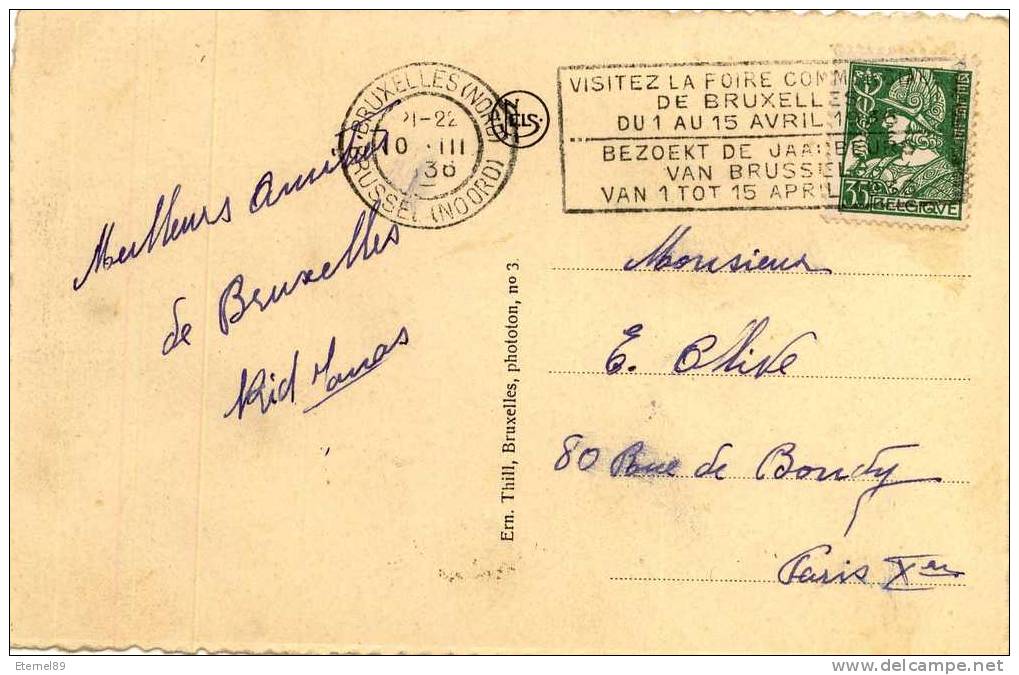 BRUXELLES (NORD)
21-22
10 III
36
BRUSSEL (NOORD)
NELS
VISITEZ LA FOIRE COMM
DE BRUXELLES
DU 1 AU 15 AVRIL 1936
BEZOEKT DE JAARBEURS
VAN BRUSSEL
VAN 1 TOT 15 APRIL 1936
35 BELGIQVE
Meilleurs amitiés
de Bruxelles
Kid
Ern. Thill, Bruxelles, phototon, no 3.
Monsieur
E. Olive
80 Rue de Bondy
Paris Xe
Eternel89
www.delcampe.net